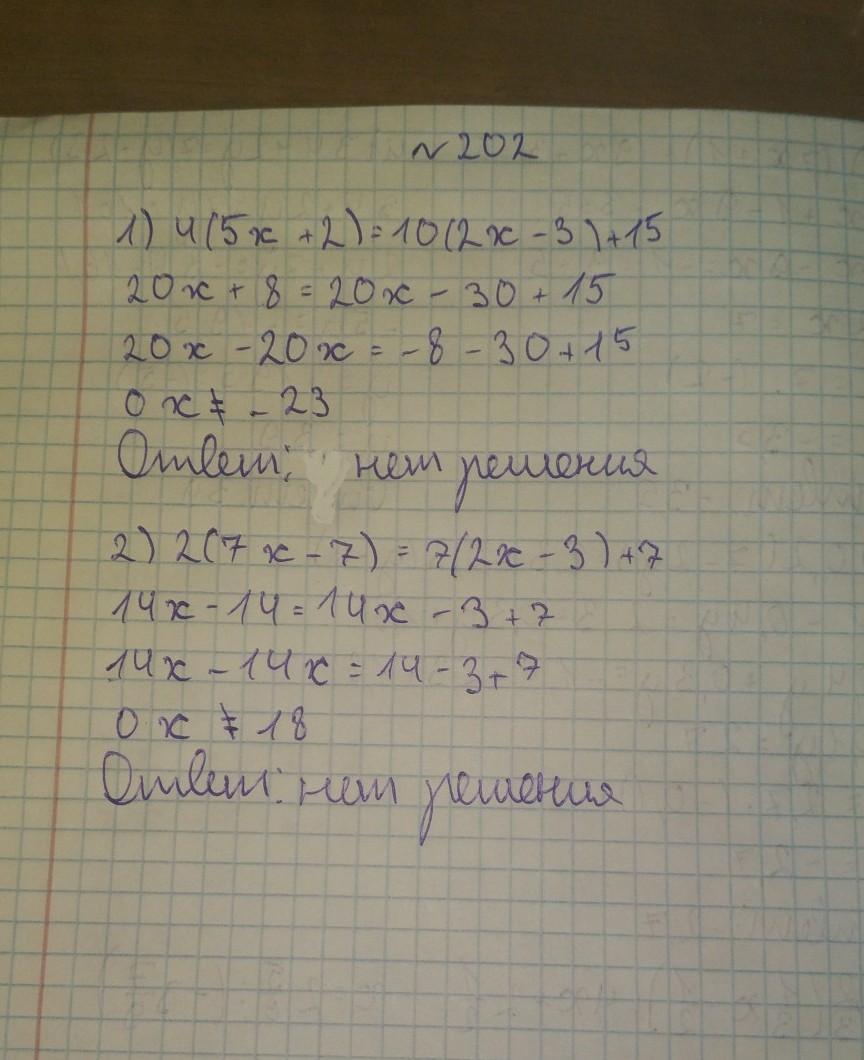 №202
1) 4(5x+2)=10(2x-3)+15
20x+8=20x-30+15
20x-20x=-8-30+15
0x≠-23
Ответ: нет решения
2) 2(7x-7)=7(2x-3)+7
14x-14=14x-3+7
14x-14x=14-3+7
0x≠18
Ответ: нет решения